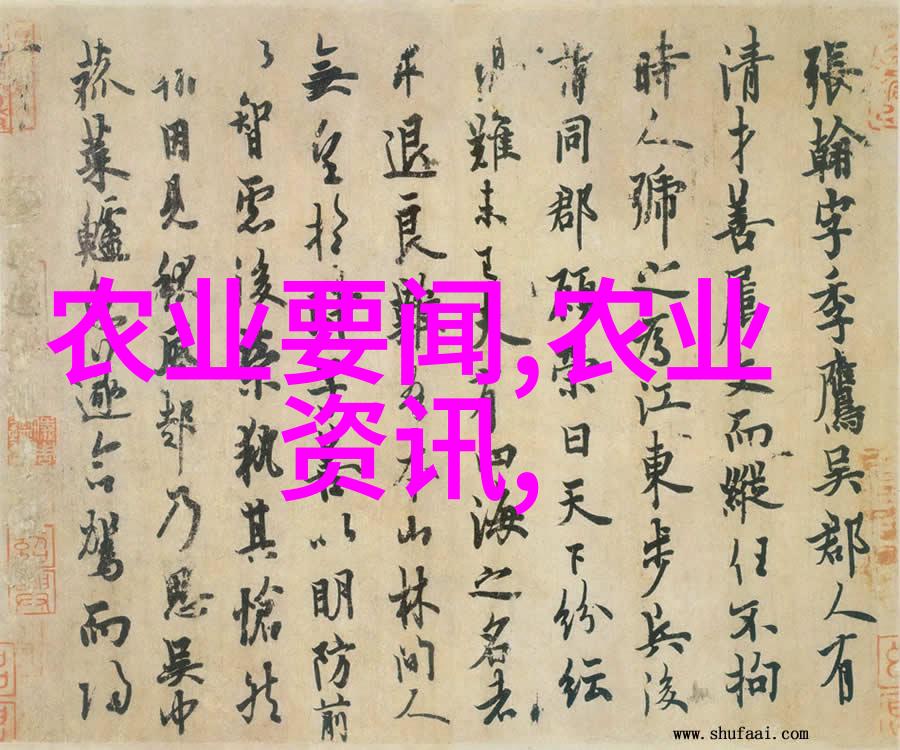 張翰字季鷹吳郡人有
清才善屬文而縱任不拘
時人號之為江東步兵後
謂同郡顧榮曰天下紛紜
難未已夫有四海之名者
求退良難吾本山林間人
無望於時子善以明防前
以智慮後榮執其愴然
翰因見秋風起乃思吳中
菰菜鱸魚遂命駕而歸
农业要闻,农业
资讯,
www.shufaai.com